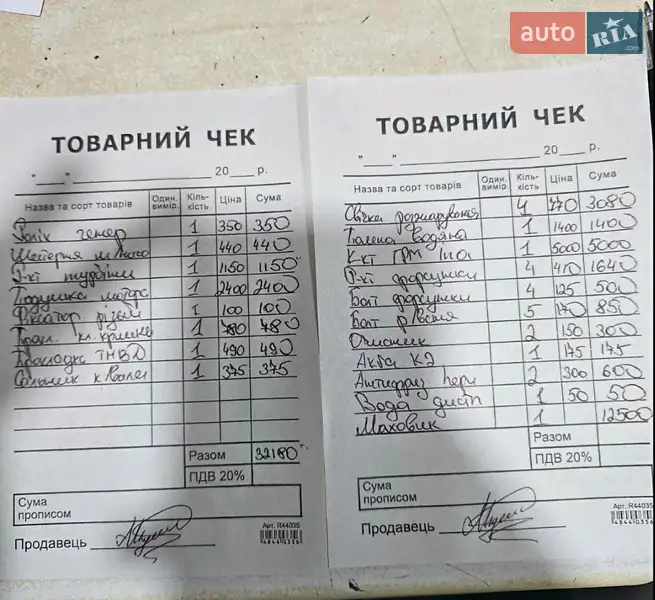 auto RIA .com
ТОВАРНИЙ ЧЕК
"___" ____________ 20 ___ р.
Назва та сорт товарів Один. вимір. Кіль-кість Ціна Сума
Ролік генер 1 350 350
Шестерня 1 440 440
Р-кт турбіни 1 1150 1150
Подушка мотора 1 2400 2400
Фіксатор різьби 1 100 100
Прокл. кл. кришки 1 780 480
Прокладка ТНВД 1 490 490
Сальник к 1 375 375
Разом 32180
ПДВ 20%
Сума прописом
Арт. R44035
Продавець
4844 0356
ТОВАРНИЙ ЧЕК
"___" ____________ 20 ___ р.
Назва та сорт товарів Один. вимір. Кіль-кість Ціна Сума
Свічка розжарування 4 770 3080
Помпа водяна 1 1400 1400
К-кт ГРМ Ina 1 5000 5000
Р-кт форсунки 4 410 1640
Болт форсунки 4 125 500
Болт 5 170 850
Очисник 2 150 300
1 175 175
Антифриз 2 300 600
Вода дист 1 50 50
Маховик 1 12500
Разом
ПДВ 20%
Сума прописом
Арт. R44035
Продавець
4844 0356